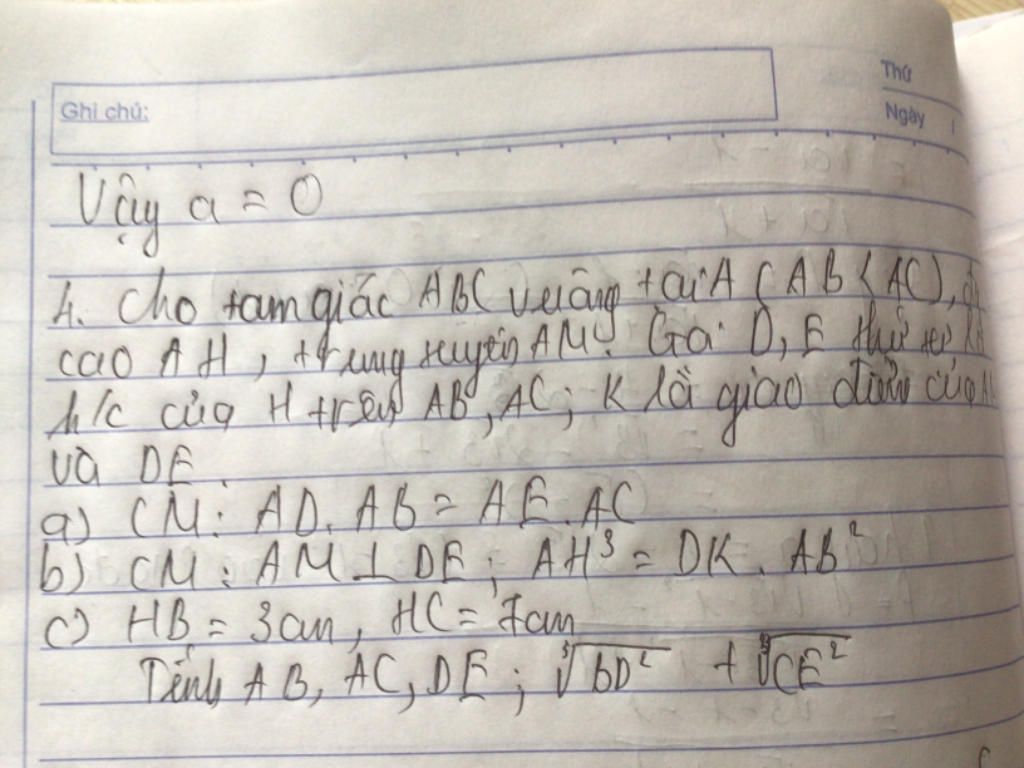 Ghi chú:
Thứ
Ngày /
Vậy a = 0
4. Cho tam giác ABC vuông tại A (AB < AC),
cao AH, trung tuyến AM. Gọi D, E thứ tự
h/c của H trên AB, AC; K là giao điểm của
và DE.
a) CM: AD. AB = AE. AC
b) CM: AM ⊥ DE; AH³ = DK. AB²
c) HB = 3cm, HC = 7cm
Tính AB, AC, DE; ∛BD² + ∛CE²